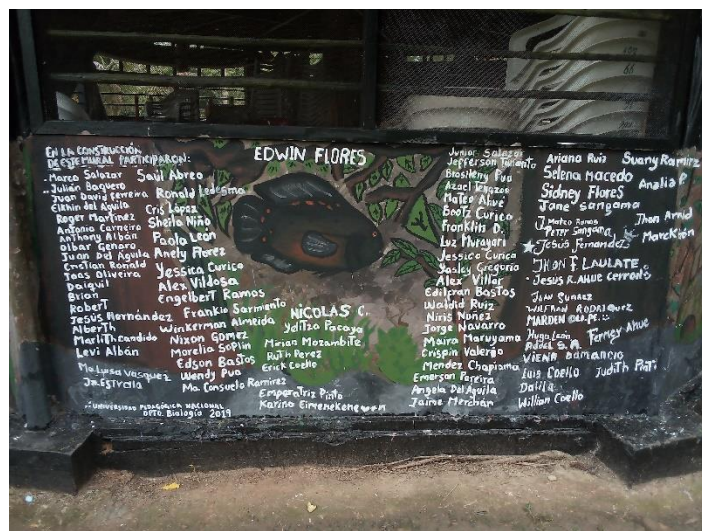 EN LA CONSTRUCCIÓN
DE ESTE MURAL PARTICIPARON:
Marco Salazar
Julián Baquero
Juan David Ferreira
Elkhin del Aguila
Roger Martínez
Antonio Carneiro
Anthony Albán
Dilbar Genaro
Juan Del Aguila
Cristian Ronald
Joas Oliveira
Daiquil
Brian
RoberT
Jesús Hernández
AlberTh
Marlith candido
Levi Albán
Ma Luisa Vasquez
Saúl Abreo
Ronald Ledesma
Cris López
Sheila Niño
Paola León
Anely Florez
Yessica Curico
Alex Vildosa
EngelberT Ramos
Frankio Sarmiento
Winkerman Almeida
Nixon Gomez
Marelia Soplin
Edson Bastos
Wendy Pua
Ma Consuelo Ramirez
EDWIN FLORES
NICOLAS C.
Yditza Pacaya
Mirian Mozambite
RuTh Perez
Erick Coello
Emperatriz Pinto
Karina Eimenekene
Junior Salazar
Jefferson
Brasileny Pua
Azael
Mateo Ahue
Bootz Curico
Franklin D.
Luz Murayari
Jessica Curica
Yasley Gregorio
Alex Villar
Edilcran Bastos
Waldid Ruiz
Niris Nuñez
Jorge Navarro
Maira Maruyama
Crispin Valerio
Mendez Chapiama
Emerson Pereira
Angela Del Aguila
Jaime Merchan
Ariana Ruiz
Selena Macedo
Sidney Flores
Jane Sangama
J. Mateo Ramos
Peter Sangama
Jesús Fernandez
JHON F. LAULATE
JESUS R. AHUE cerrono
Juan Suarez
WILFRAN RODRIGUEZ
MARDEN
Hugo León
Ferney Ahue
VIENA DAMANCIO
Luis Coello
Judith
Dalila
Willian Coello
Suany Ramirez
Analia P.
Jhon Arnold
UNIVERSIDAD PEDAGÓGICA NACIONAL
DPTO. Biología 2019